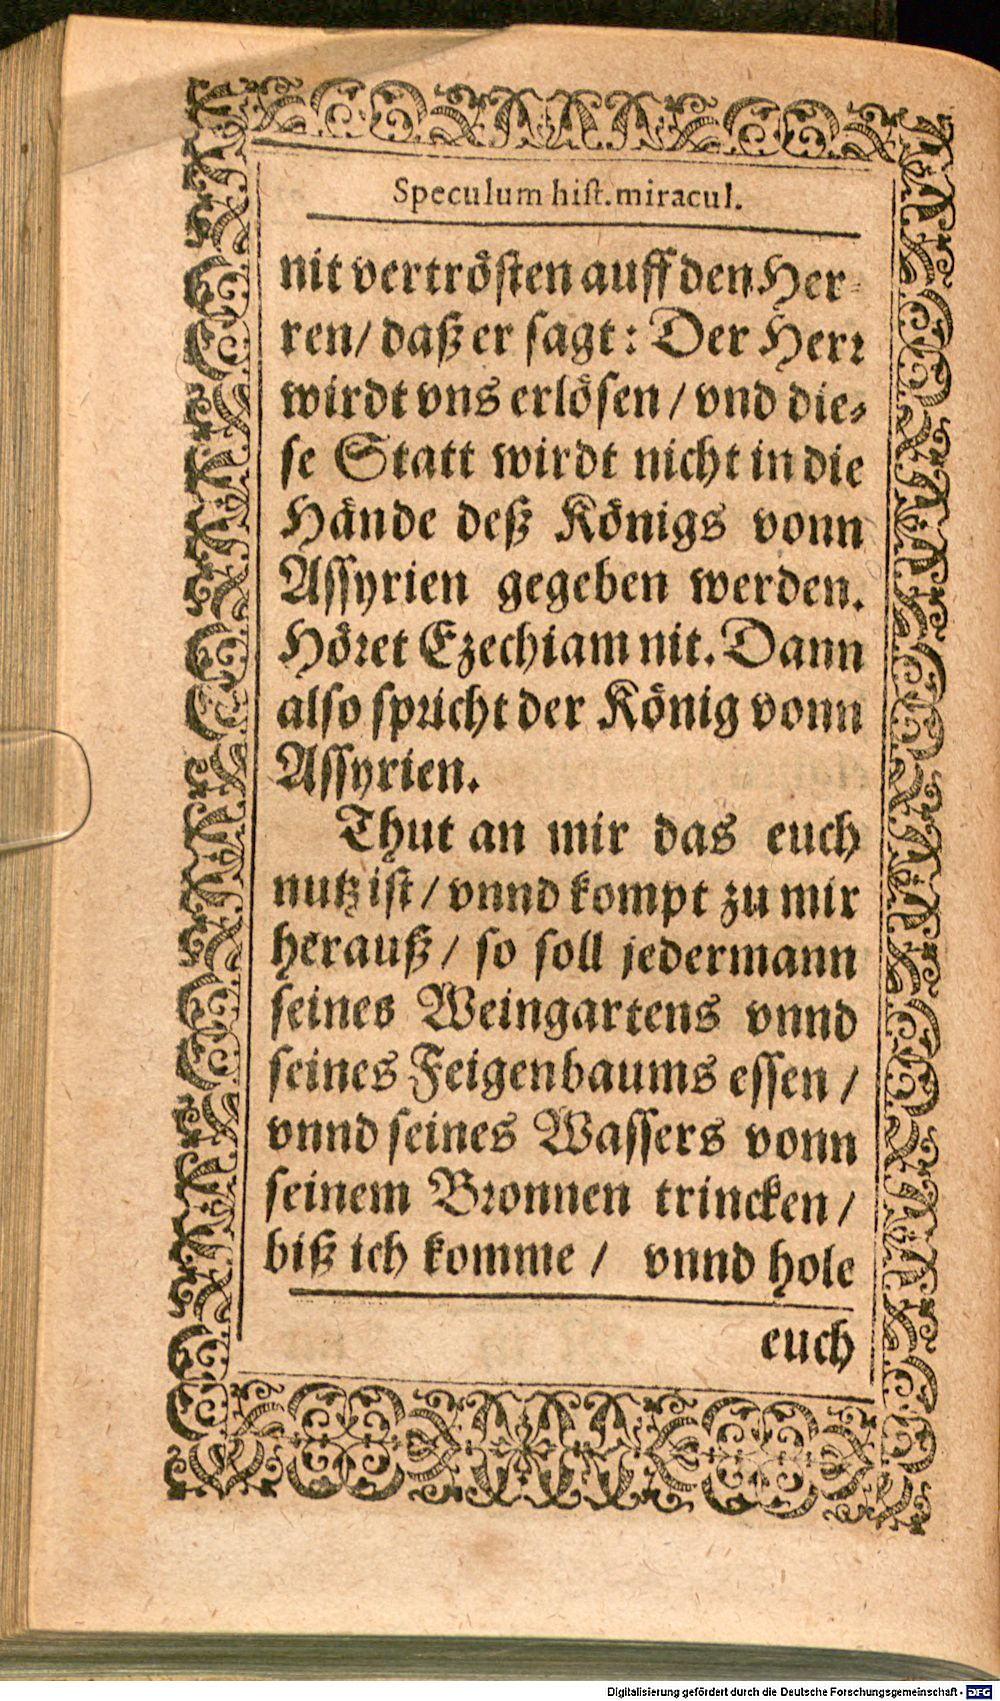 Speculum hist. miracul.
nit vertrösten auff den Her-
ren/ daß er sagt: Der Herr
wirdt vns erlösen / vnd die-
se Statt wirdt nicht in die
Hände deß Königs vonn
Assyrien gegeben werden.
Höret Ezechiam nit. Dann
also spricht der König vonn
Assyrien.
Thut an mir das euch
nutz ist / vnnd kompt zu mir
herauß / so soll jedermann
seines Weingartens vnnd
seines Feigenbaums essen /
vnnd seines Wassers vonn
seinem Bronnen trincken /
biß ich komme / vnnd hole
euch
Digitalisierung gefördert durch die Deutsche Forschungsgemeinschaft - DFG